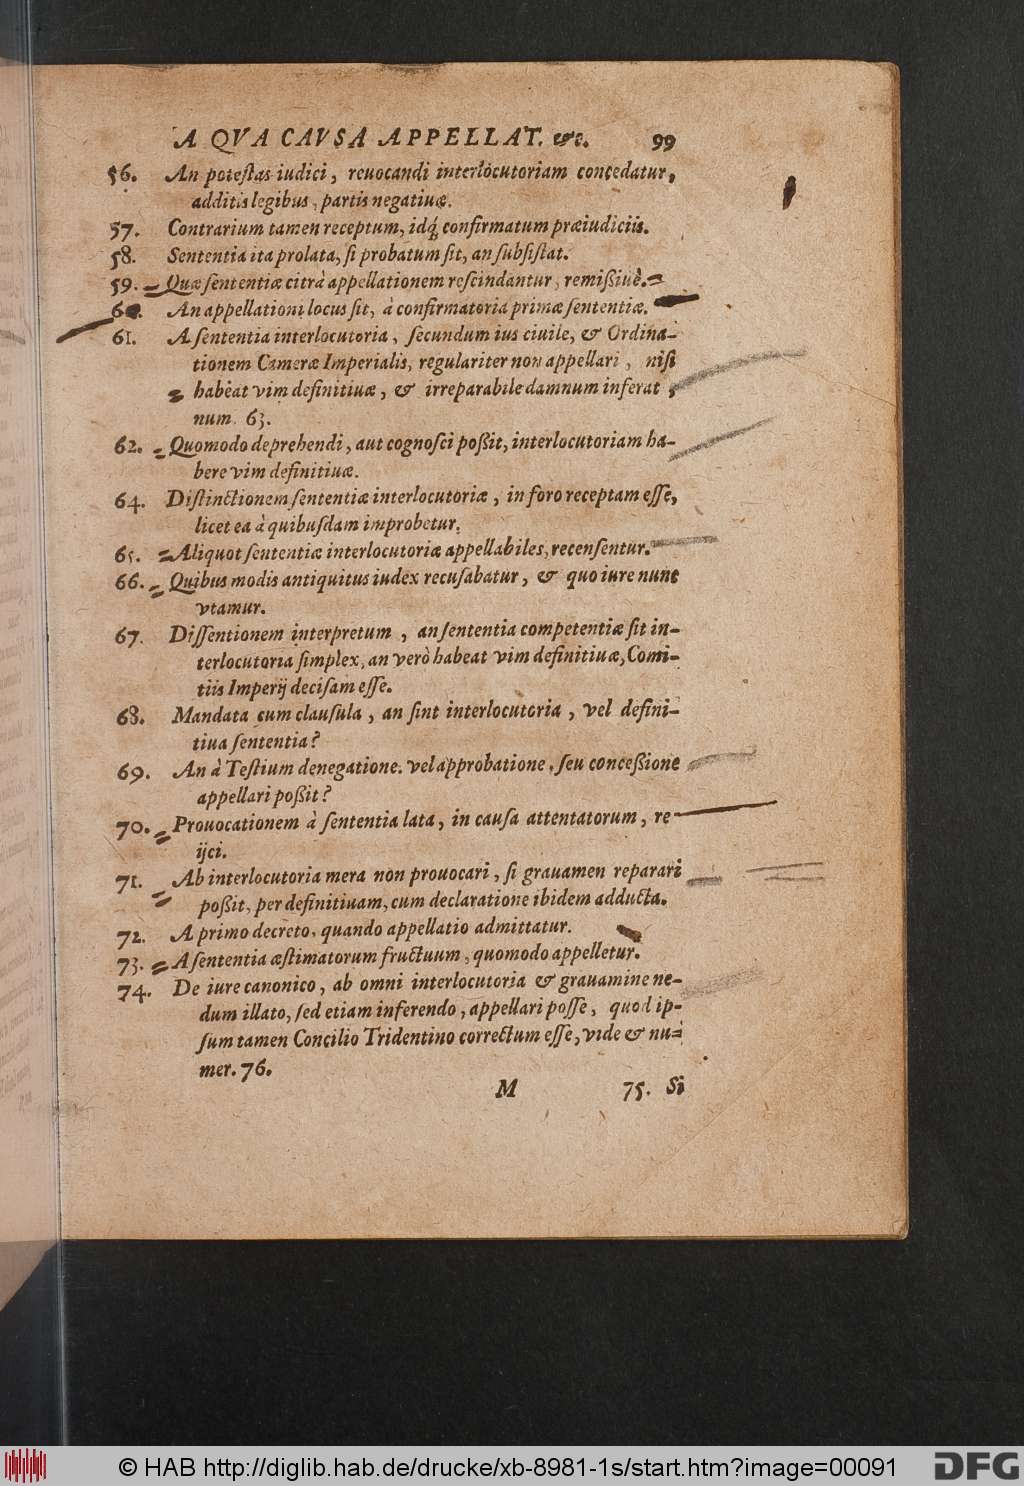 A QVA CAVSA APPELLAT. &c. 99
56. An potestas iudici, reuocandi interlocutoriam concedatur,
additis legibus, partis negatiuæ.
57. Contrarium tamen receptum, idq́; confirmatum præiudiciis.
58. Sententia ita prolata, si probatum sit, an subsistat.
59. Quæ sententiæ citrà appellationem rescindantur, remißiuè.
60. An appellationi locus sit, à confirmatoria primæ sententiæ.
61. A sententia interlocutoria, secundum ius ciuile, & Ordina-
tionem Cameræ Imperialis, regulariter non appellari, nisi
habeat vim definitiuæ, & irreparabile damnum inferat,
num. 63.
62. Quomodo deprehendi, aut cognosci poßit, interlocutoriam ha-
bere vim definitiuæ.
64. Distinctionem sententiæ interlocutoriæ, in foro receptam esse,
licet ea à quibusdam improbetur.
65. Aliquot sententiæ interlocutoriæ appellabiles, recensentur.
66. Quibus modis antiquitus iudex recusabatur, & quo iure nunc
vtamur.
67. Dissentionem interpretum, an sententia competentiæ sit in-
terlocutoria simplex, an verò habeat vim definitiuæ, Comi-
tiis Imperij decisam esse.
68. Mandata cum clausula, an sint interlocutoria, vel defini-
tiua sententia?
69. An à Testium denegatione. vel approbatione, seu conceßione
appellari poßit?
70. Prouocationem à sententia lata, in causa attentatorum, re
ijci.
71. Ab interlocutoria mera non prouocari, si grauamen reparari
poßit, per definitiuam, cum declaratione ibidem adducta.
72. A primo decreto, quando appellatio admittatur.
73. A sententia æstimatorum fructuum, quomodo appelletur.
74. De iure canonico, ab omni interlocutoria & grauamine ne-
dum illato, sed etiam inferendo, appellari posse, quod ip-
sum tamen Concilio Tridentino correctum esse, vide & nu-
mer. 76.
M 75. Si
© HAB http://diglib.hab.de/drucke/xb-8981-1s/start.htm?image=00091 DFG